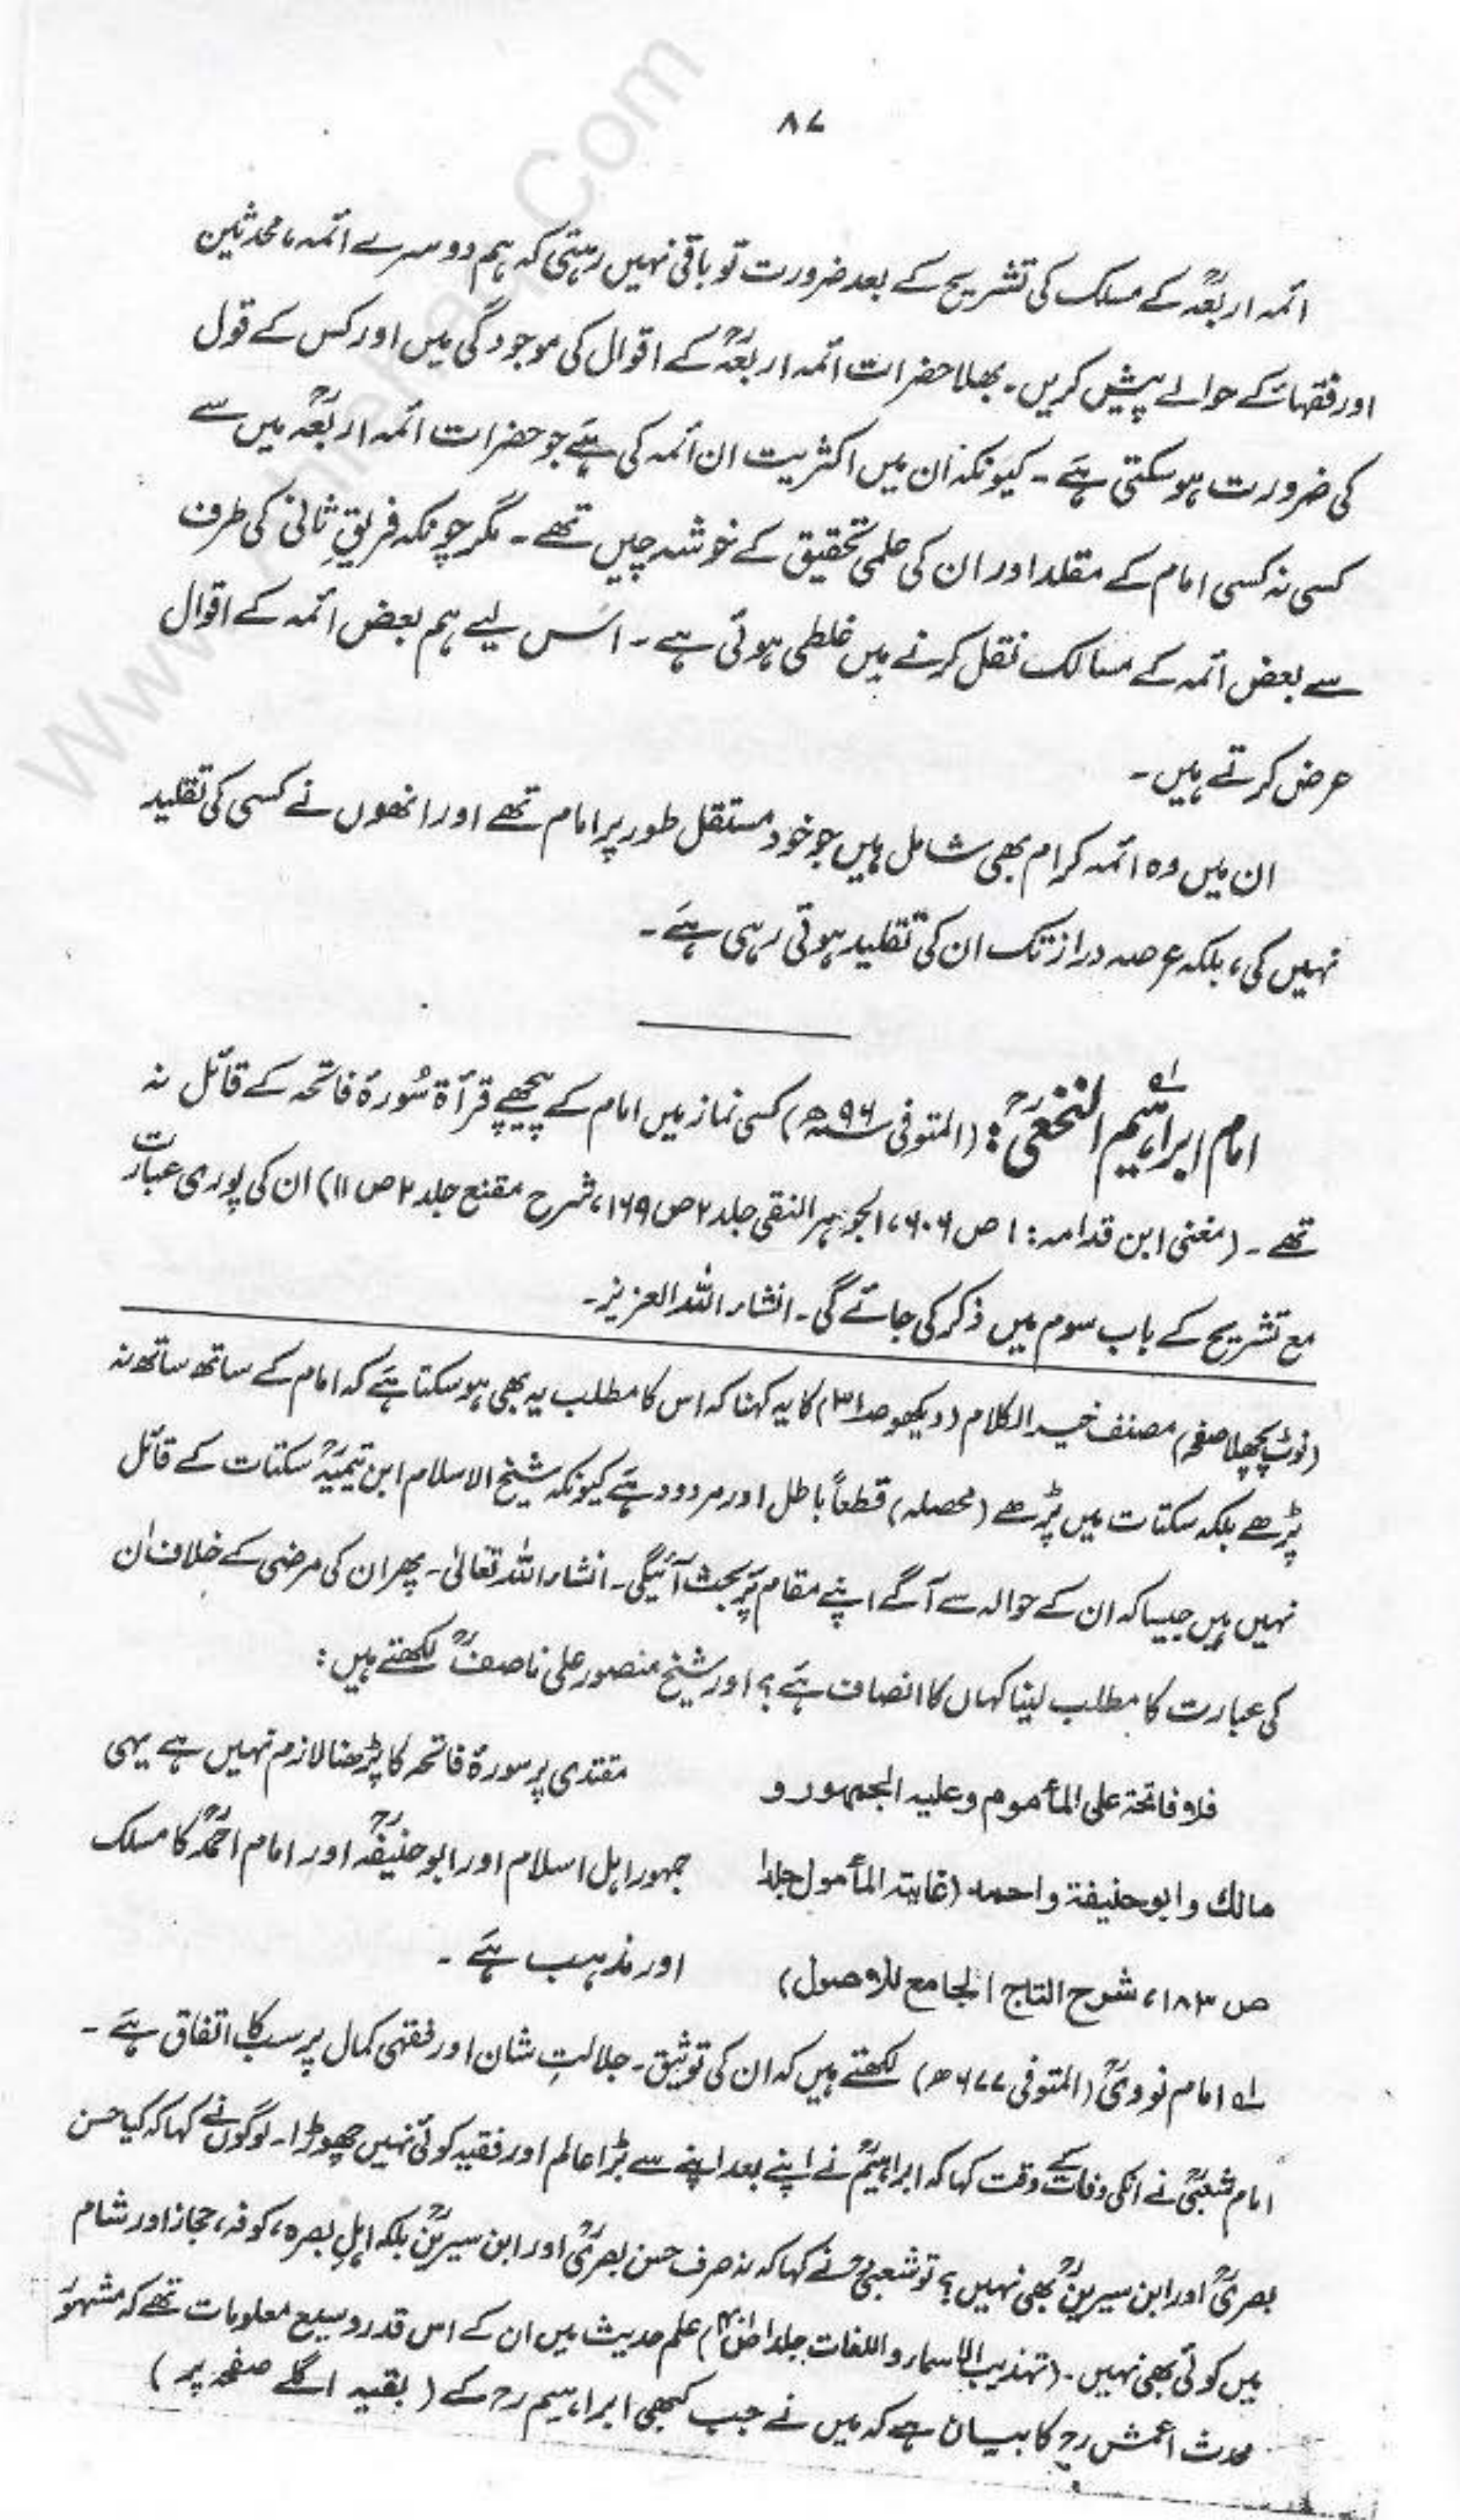 ۸۷
ائمہ اربعہؒ کے مسلک کی تشریح کے بعد ضرورت تو باقی نہیں رہتی کہ ہم دوسرے ائمہ، محدثین
اور فقہاءؒ کے حوالے پیش کریں۔ بھلا حضرات ائمہ اربعہؒ کے اقوال کی موجودگی میں اور کس کے قول
کی ضرورت ہو سکتی ہے۔ کیونکہ ان میں اکثریت ان ائمہ کی ہے جو حضرات ائمہ اربعہؒ میں سے
کسی نہ کسی امام کے مقلد اور ان کی علمی تحقیق کے خوشہ چیں تھے۔ مگر چونکہ فریقِ ثانی کی طرف
سے بعض ائمہ کے مسالک نقل کرنے میں غلطی ہوئی ہے۔ اس لیے ہم بعض ائمہ کے اقوال
عرض کرتے ہیں۔
ان میں وہ ائمہ کرام بھی شامل ہیں جو خود مستقل طور پر امام تھے اور انھوں نے کسی کی تقلید
نہیں کی، بلکہ عرصہ دراز تک ان کی تقلید ہوتی رہی ہے۔
امام ابراہیم النخعیؒ: لہ (المتوفی ۹۶ھ) کسی نماز میں امام کے پیچھے قرأۃ سُورۃ فاتحہ کے قائل نہ
تھے۔ (مغنی ابن قدامہ: ۱ ص ۶۰۶، الجوہر النقی جلد ۲ ص ۱۶۹، شرح مقنع جلد ۲ ص ۱۱) ان کی پوری عبارت
مع تشریح کے باب سوم میں ذکر کی جائے گی۔ انشاء اللہ العزیز۔
(نوٹ پچھلا صفحہ) مصنف خیر الکلام (دیکھو صـ۳۱) کا یہ کہنا کہ اس کا مطلب یہ بھی ہو سکتا ہے کہ امام کے ساتھ ساتھ نہ
پڑھے بلکہ سکتات میں پڑھے (محصلہ) قطعاً باطل اور مردود ہے کیونکہ شیخ الاسلام ابن تیمیہؒ سکتات کے قائل
نہیں ہیں جیسا کہ ان کے حوالہ سے آگے اپنے مقام پر بحث آئیگی۔ انشاء اللہ تعالیٰ۔ پھر ان کی مرضی کے خلاف ان
کی عبارت کا مطلب لینا کہاں کا انصاف ہے؟ اور شیخ منصور علی ناصفؒ لکھتے ہیں:
فلا فاتحۃ علی المأموم وعلیہ الجمہور و
مالك وابوحنیفۃ واحمد (غایۃ المأمول جلد۱
ص ۱۸۳، شرح التاج الجامع للاصول)
مقتدی پر سورۃ فاتحہ کا پڑھنا لازم نہیں ہے یہی
جمہور اہل اسلام اور ابو حنیفہؒ اور امام احمدؒ کا مسلک
اور مذہب ہے۔
لہ امام نوویؒ (المتوفی ۶۷۷ھ) لکھتے ہیں کہ ان کی توثیق۔ جلالتِ شان اور فقہی کمال پر سب کا اتفاق ہے۔
امام شعبیؒ نے انکی وفات کے وقت کہا کہ ابراہیمؒ نے اپنے بعد اپنے سے بڑا عالم اور فقیہ کوئی نہیں چھوڑا۔ لوگوں نے کہا کہ کیا حسن
بصریؒ اور ابن سیرینؒ بھی نہیں؟ تو شعبیؒ نے کہا کہ نہ صرف حسن بصریؒ اور ابن سیرینؒ بلکہ اہلِ بصرہ، کوفہ، حجاز اور شام
میں کوئی بھی نہیں۔ (تہذیب الاسماء واللغات جلد۱) علم حدیث میں ان کے اس قدر وسیع معلومات تھے کہ مشہور
محدث اعمش رح کا بیان ہے کہ میں نے جب کبھی ابراہیم رح کے (بقیہ اگلے صفحہ پر)